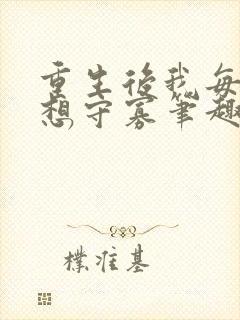 重生後我每
想守寡筆趣
樸准基